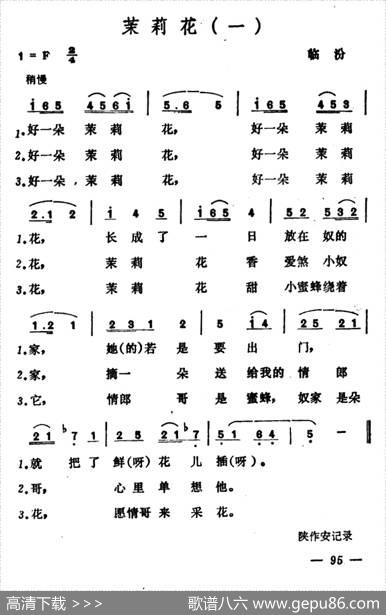 茉莉花(一)
1=F 2/4 临汾
稍慢
i65 456i | 5.6 5 | i65 453 |
1.好一朵 茉莉 花, 好一朵 茉莉
2.好一朵 茉莉 花, 好一朵 茉莉
3.好一朵, 茉莉 花, 好一朵 茉莉
2.1 2 | i 4 5 | i65 4 | 52 532 |
1.花, 长成了 一 日 放在奴的
2.花, 茉莉 花 香 爱煞小奴
3.花, 茉莉 花 甜 小蜜蜂绕着
1.2 1 | 231 2 | 5 i4 | 25 21 |
1.家, 她(的)若 是 要出 门,
2.家, 摘一 朵 送 给我的 情郎
3.它, 情郎 哥 是 蜜蜂, 奴家是朵
21 ♭7 1 | 25 21♭7 | 51 64 | 5 — ‖
1.就 把了 鲜(呀)花 儿 插(呀)。
2.哥, 心里 单 想他。
3.花, 愿情哥 来 采 花。
陕作安记录
— 95 —
高清下载 >>>
歌谱八六 www.gepu86.com